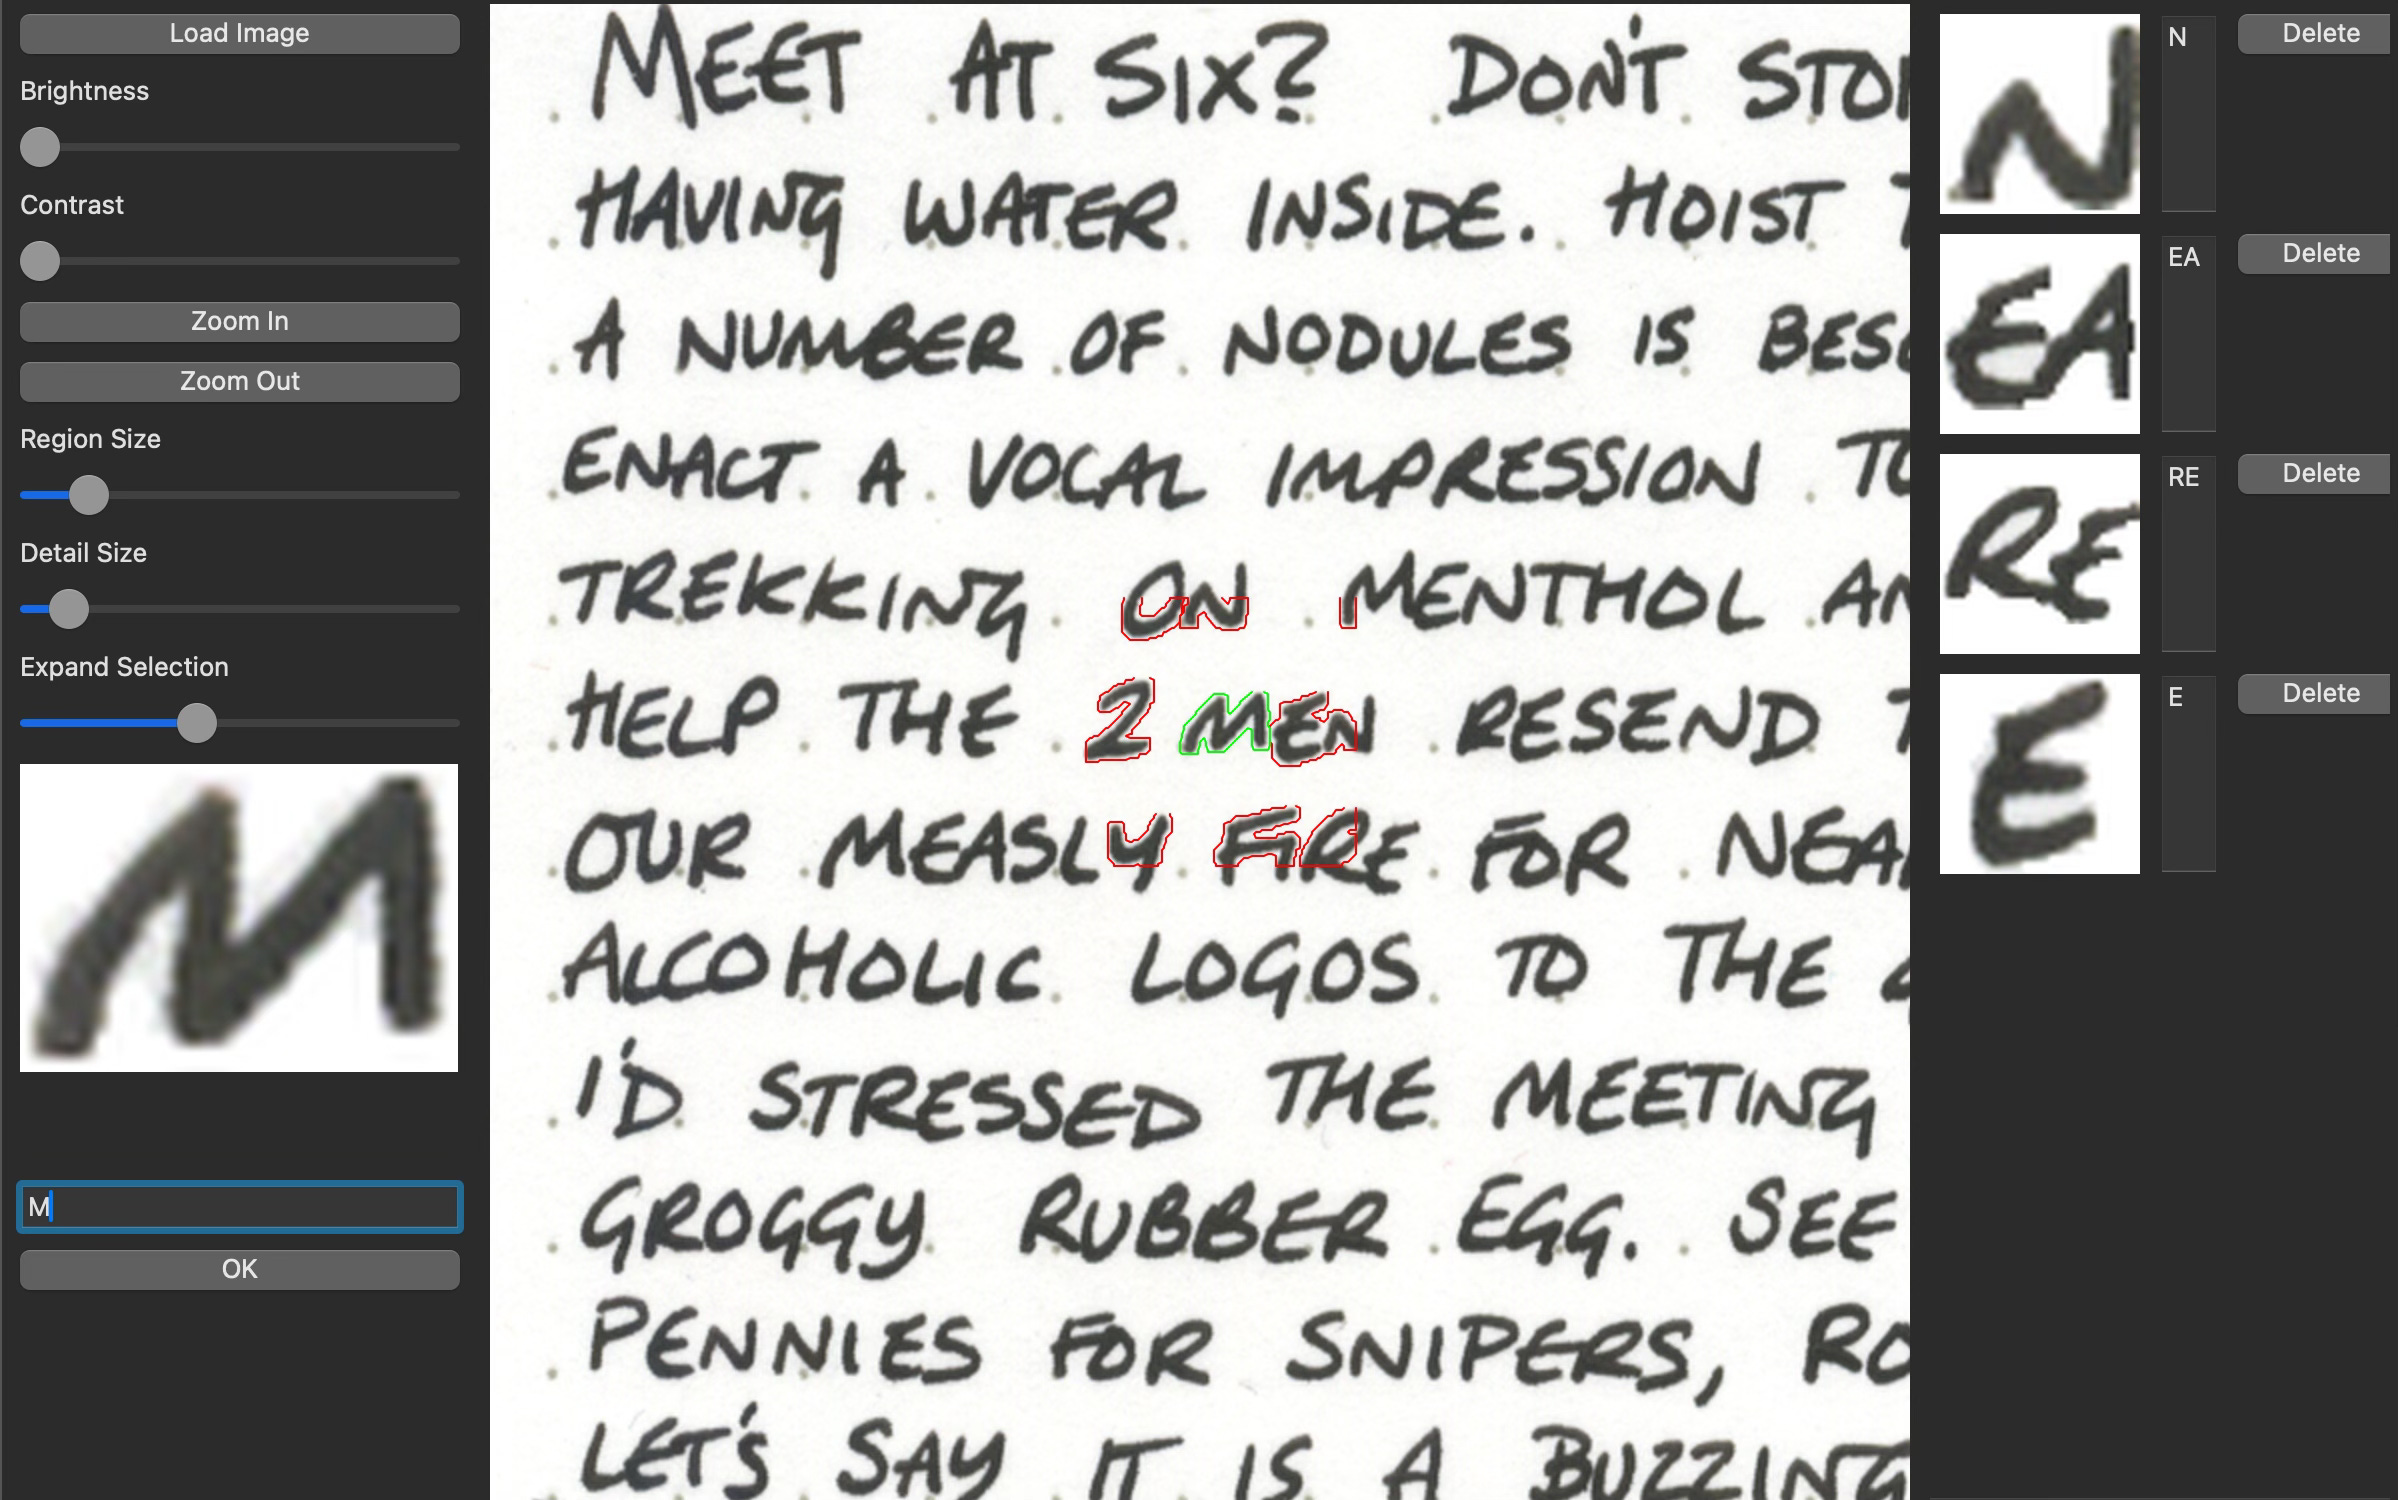 Load Image
Brightness
Contrast
Zoom In
Zoom Out
Region Size
Detail Size
Expand Selection
M
M
OK
MEET AT SIX? DON'T STO
HAVING WATER INSIDE. HOIST T
A NUMBER OF NODULES IS BES
ENACT A VOCAL IMPRESSION TO
TREKKING ON MENTHOL AN
HELP THE 2 MEN RESEND T
OUR MEASLY FIRE FOR NEA
ALCOHOLIC LOGOS TO THE
I'D STRESSED THE MEETING
GROGGY RUBBER EGG. SEE
PENNIES FOR SNIPERS, RO
LET'S SAY IT IS A BUZZING
N N Delete
EA EA Delete
RE RE Delete
E E Delete